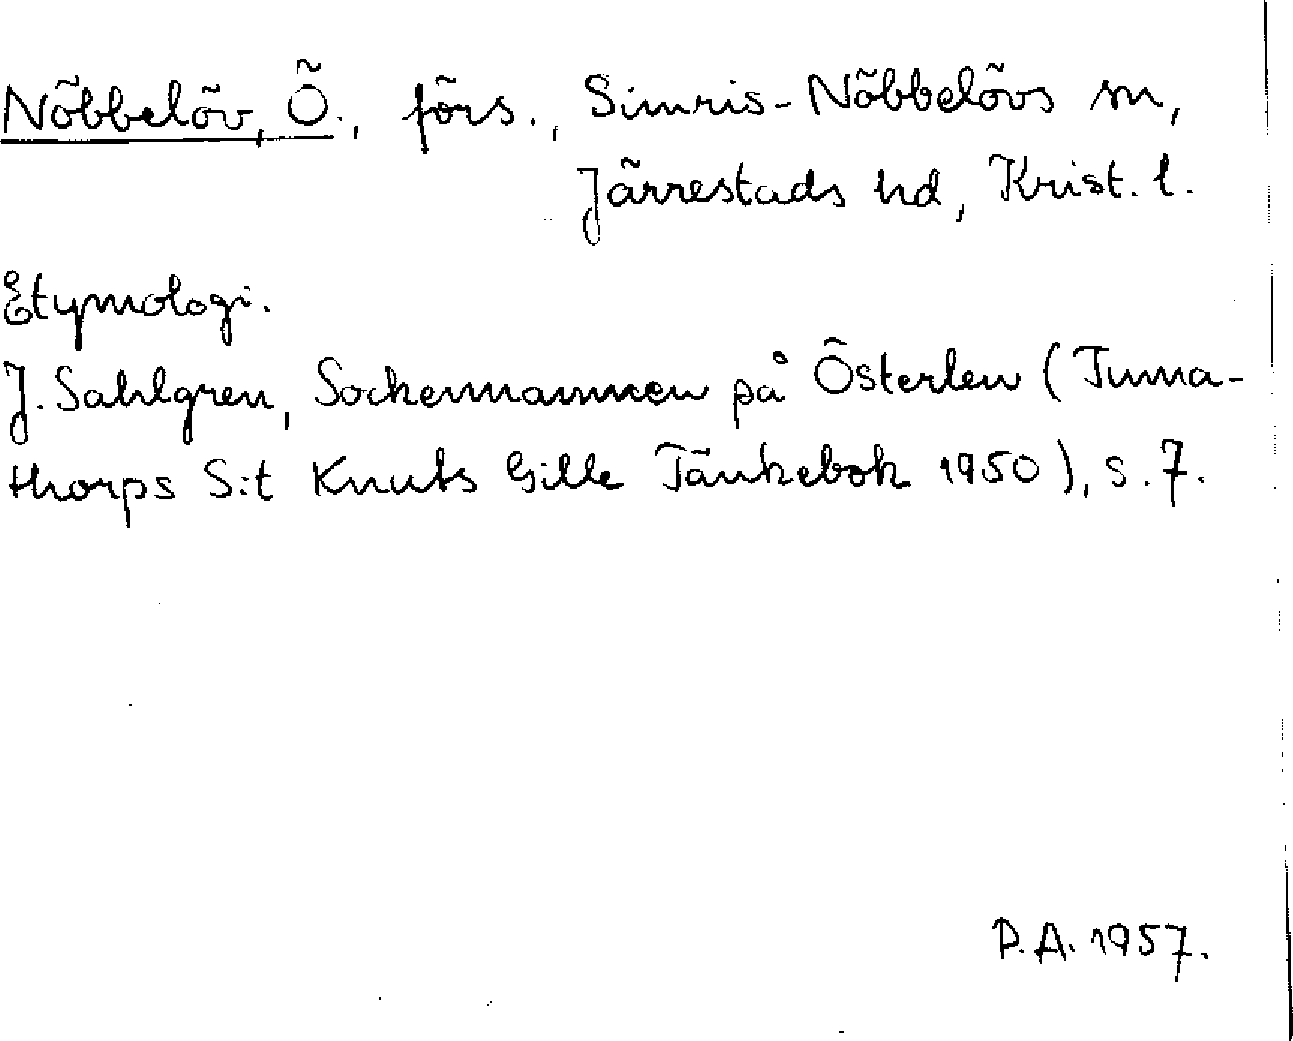 Nöbbelöv, Ö., förs., Simris-Nöbbelövs sn,
Järrestads hd, Krist. l.
Etymologi.
J. Sahlgren, Sockennamnen på Österlen (Tuma-
thorps S:t Knuts Gille Tänkebok 1950), s. 7.
P.A. 1957.